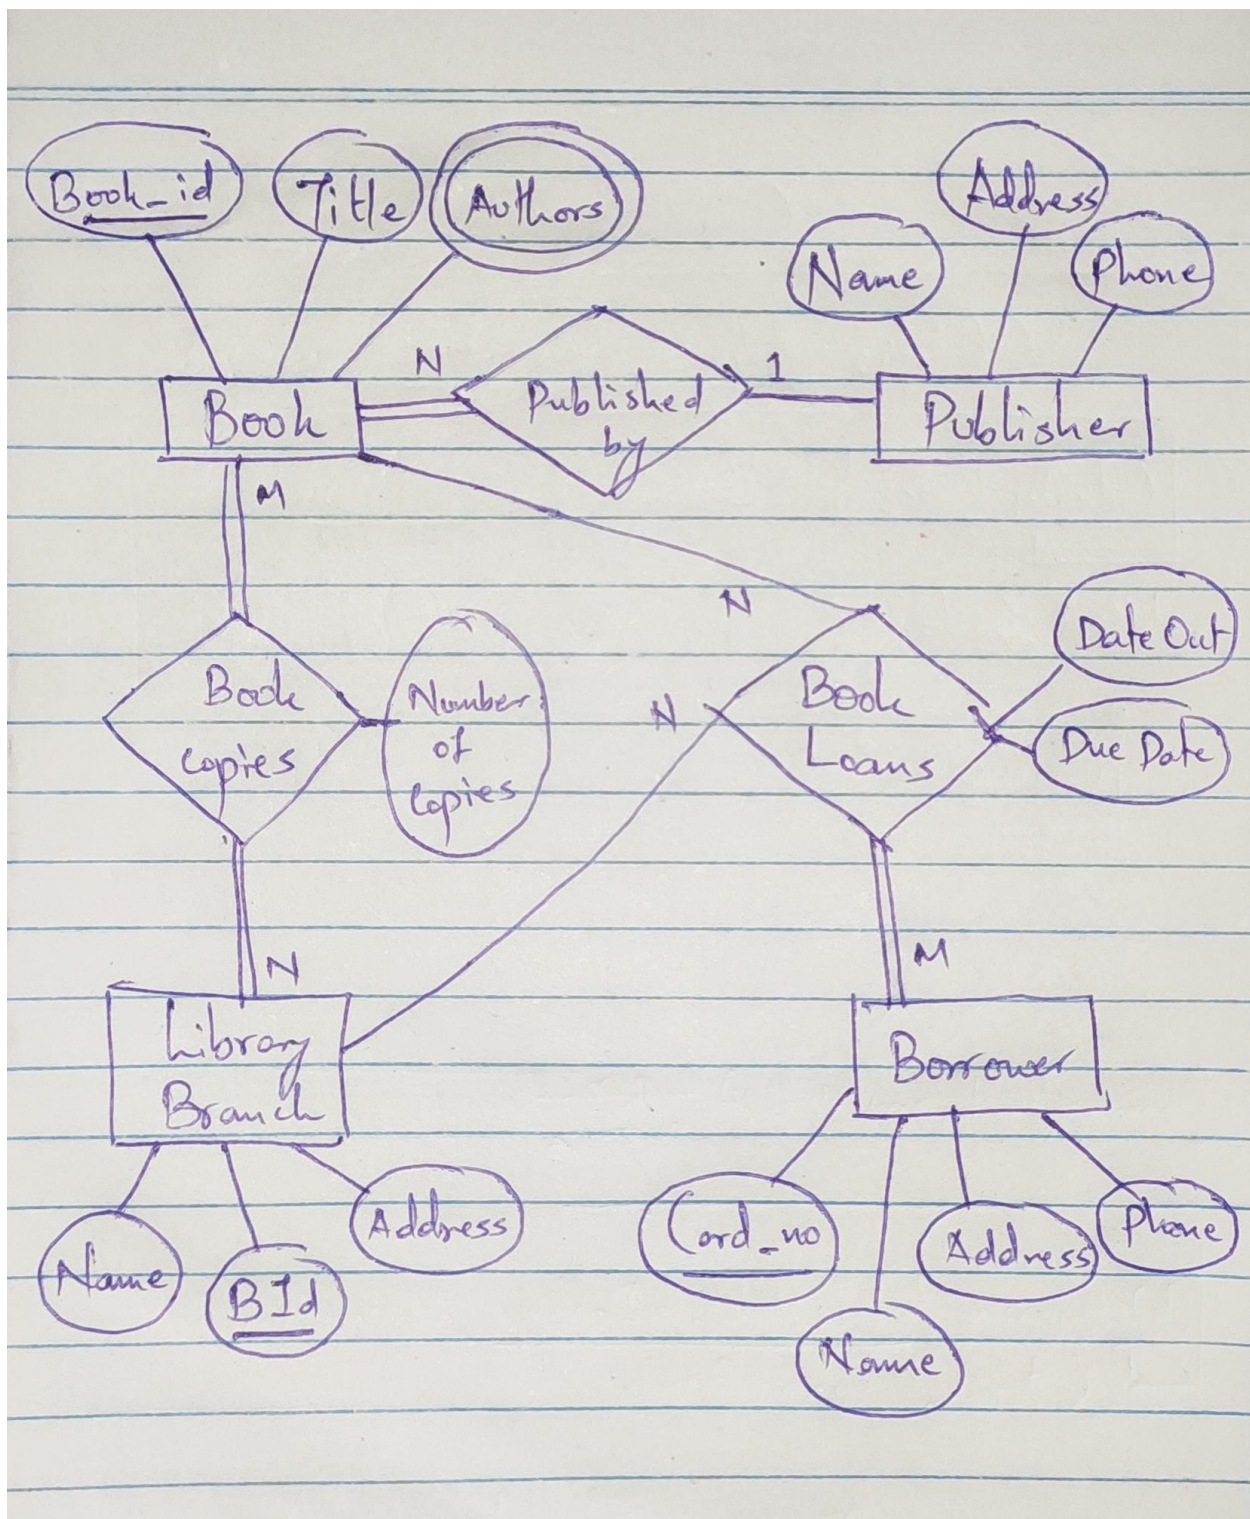 Book_id
Title
Authors
Address
Name
Phone
N
1
Book
Published
by
Publisher
M
N
Date Out
Book
copies
Number
of
Copies
N
Book
Loans
Due Date
N
M
Library
Branch
Borrower
Name
BId
Address
Card_no
Name
Address
Phone